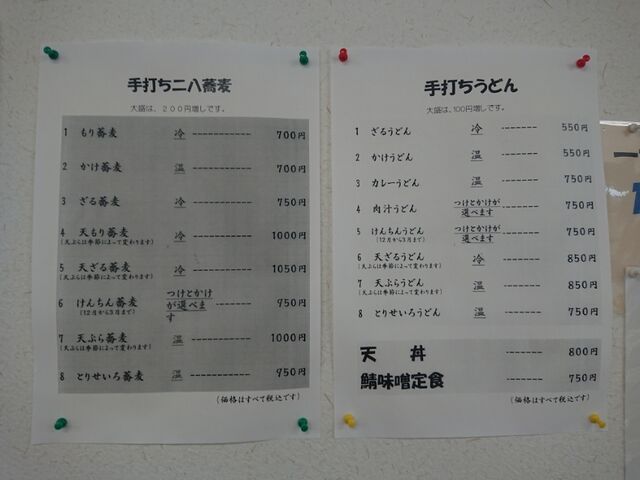 手打ち二八蕎麦
大盛は、２００円増しです。
1 もり蕎麦 冷 ----------- 700円
2 かけ蕎麦 温 ----------- 700円
3 ざる蕎麦 冷 ----------- 750円
4 天もり蕎麦 冷 ----------- 1000円
(天ぷらは季節によって変わります)
5 天ざる蕎麦 冷 ----------- 1050円
(天ぷらは季節によって変わります)
6 けんちん蕎麦 つけとかけが選べます ------- 950円
(12月から3月まで)
7 天ぷら蕎麦 温 ----------- 1000円
(天ぷらは季節によって変わります)
8 とりせいろ蕎麦 温 ----------- 950円
(価格はすべて税込です)
手打ちうどん
大盛は、100円増しです。
1 ざるうどん 冷 ------- 550円
2 かけうどん 温 ------- 550円
3 カレーうどん 温 ------- 750円
4 肉汁うどん つけとかけが選べます ------- 750円
5 けんちんうどん つけとかけが選べます ------- 750円
(12月から3月まで)
6 天ざるうどん 冷 ------- 850円
(天ぷらは季節によって変わります)
7 天ぷらうどん 温 ------- 850円
(天ぷらは季節によって変わります)
8 とりせいろうどん 温 ------- 750円
天　丼 ------- 800円
鯖味噌定食 ------- 750円
(価格はすべて税込です)